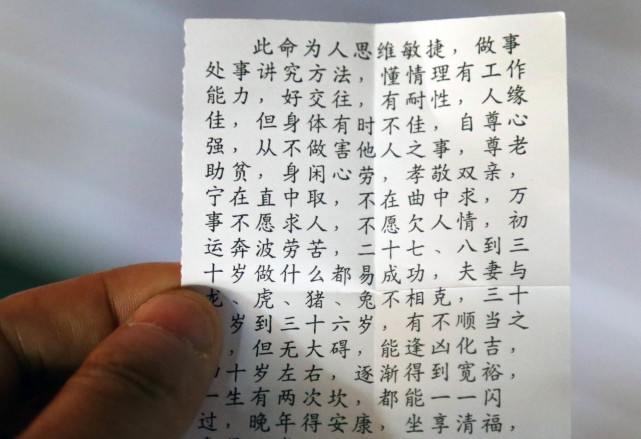 此命为人思维敏捷，做事
处事讲究方法，懂情理有工作
能力，好交往，有耐性，人缘
佳，但身体有时不佳，自尊心
强，从不做害他人之事，尊老
助贫，身闲心劳，孝敬双亲，
宁在直中取，不在曲中求，万
事不愿求人，不愿欠人情，初
运奔波劳苦，二十七、八到三
十岁做什么都易成功，夫妻与
龙、虎、猪、兔不相克，三十
岁到三十六岁，有不顺当之
，但无大碍，能逢凶化吉，
十岁左右，逐渐得到宽裕，
一生有两次坎，都能一一闪
过，晚年得安康，坐享清福，